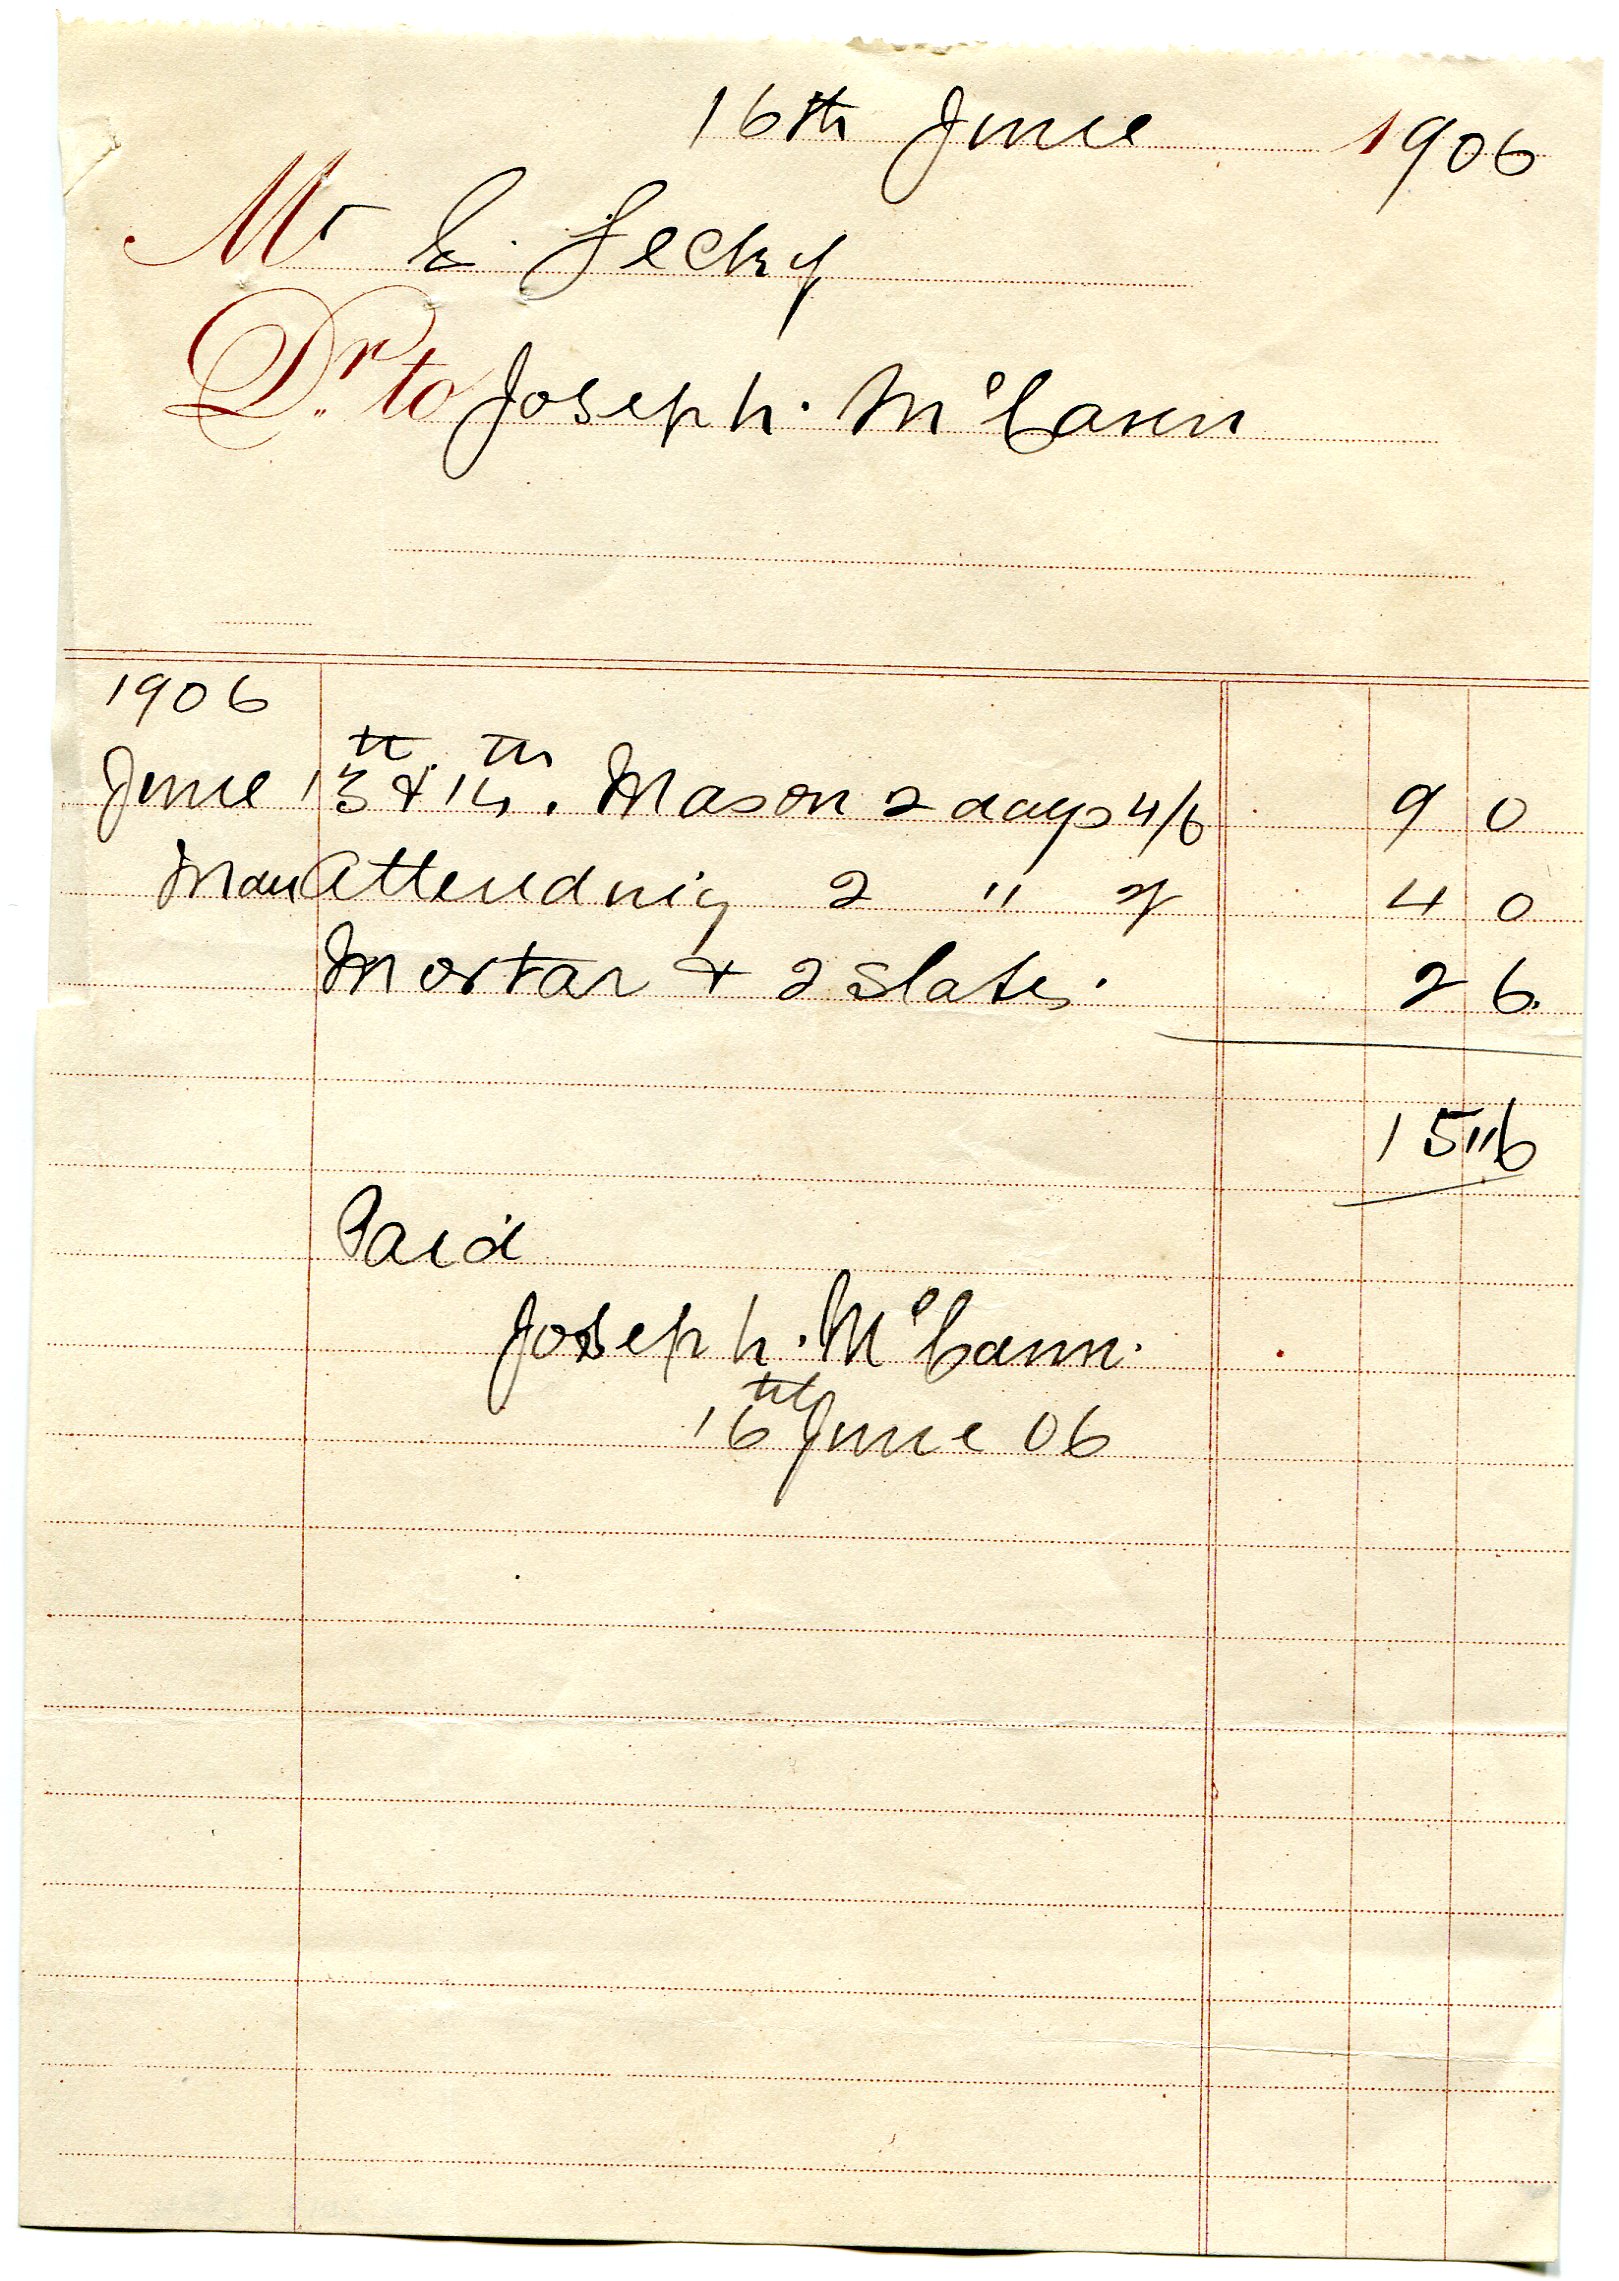 16th June 1906
Mr E. Lecky
Dr. to Joseph. McCann
1906
June 13th & 14th. Mason 2 days 4/6 9 0
Man Attending 2 " 2/ 4 0
Mortar & 2 Slates. 2 6.
15"6
Paid
Joseph. McCann.
16th June 06